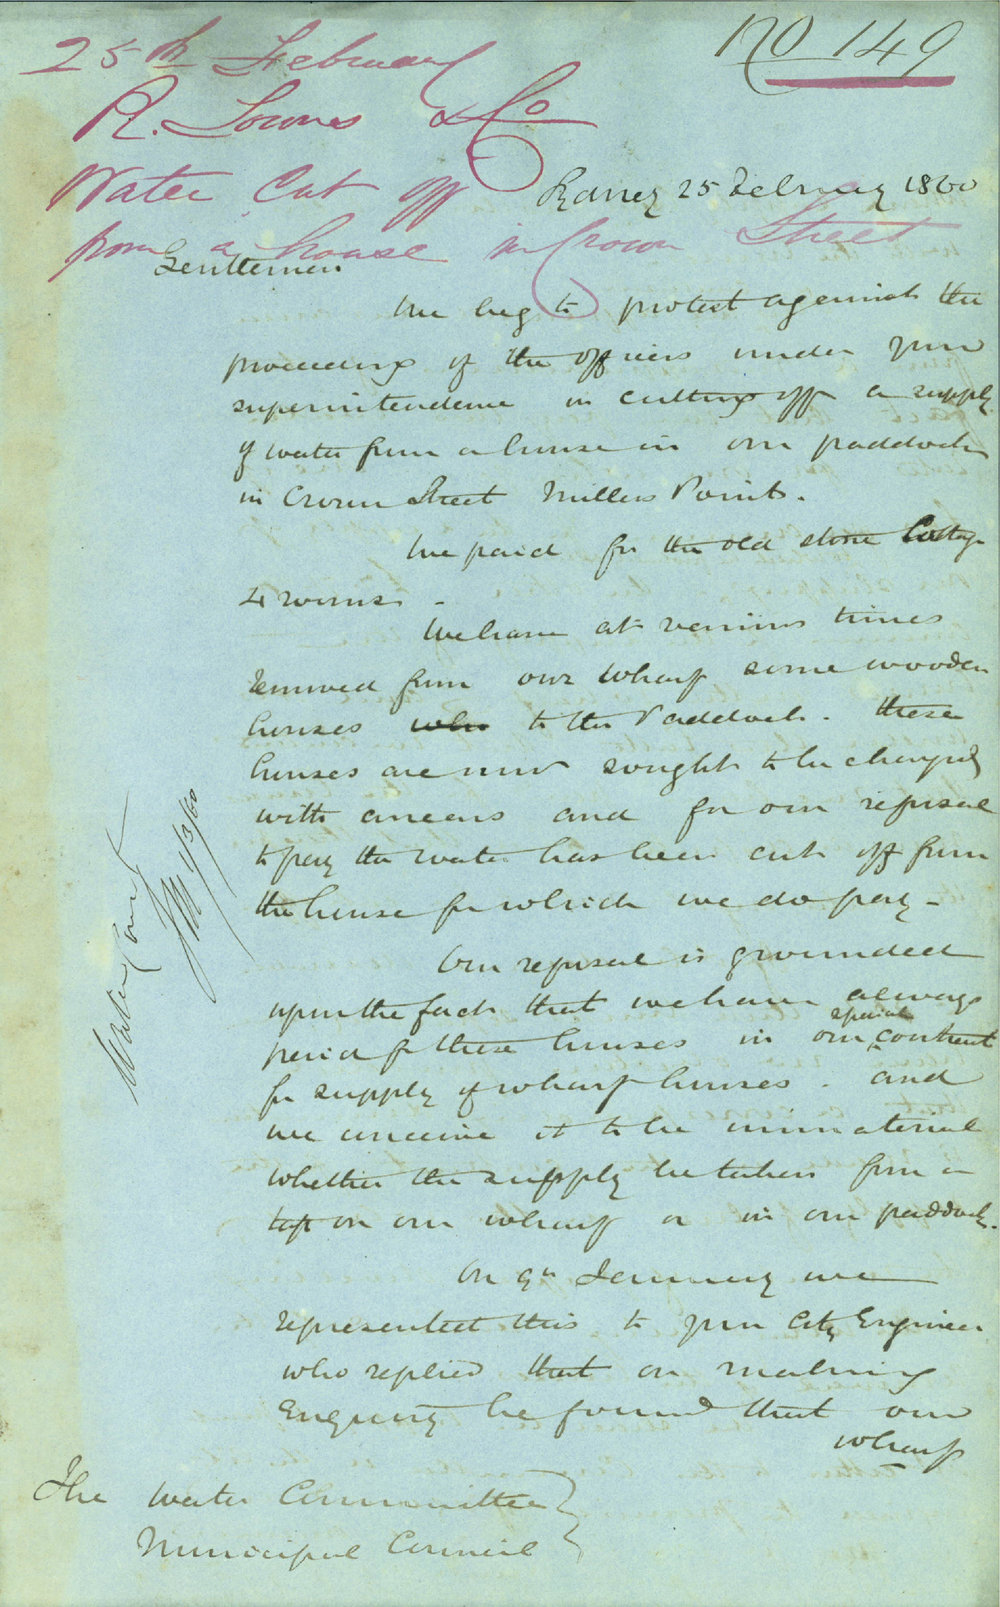 No 149
25th February
R. Towns & Co
Water Cut off
from a house in Crown Street
Sydney 25 February 1860
Gentlemen
We beg to protest against the
proceedings of the officers under your
superintendence in cutting off a supply
of water from a house in our paddock
in Crown Street Millers Point.
We paid for the old stone Cottage
4 rooms.
We have at various times
removed from our Wharf some wooden
houses who to the Paddock. these
houses are now sought to be charged
with arrears and for our refusal
to pay the water has been cut off from
the house for which we do pay -
Our refusal is grounded
upon the fact that we have always
paid for these houses in our special contract
for supply of wharf houses. and
we conceive it to be immaterial
whether the supply be taken from a
tap on our wharf or in our paddock.
On 9th January we
represented this to your City Engineer
who replied that on making
Enquiry he found that our
wharf
The Water Committee
Municipal Council
Water Comt
1/3/60